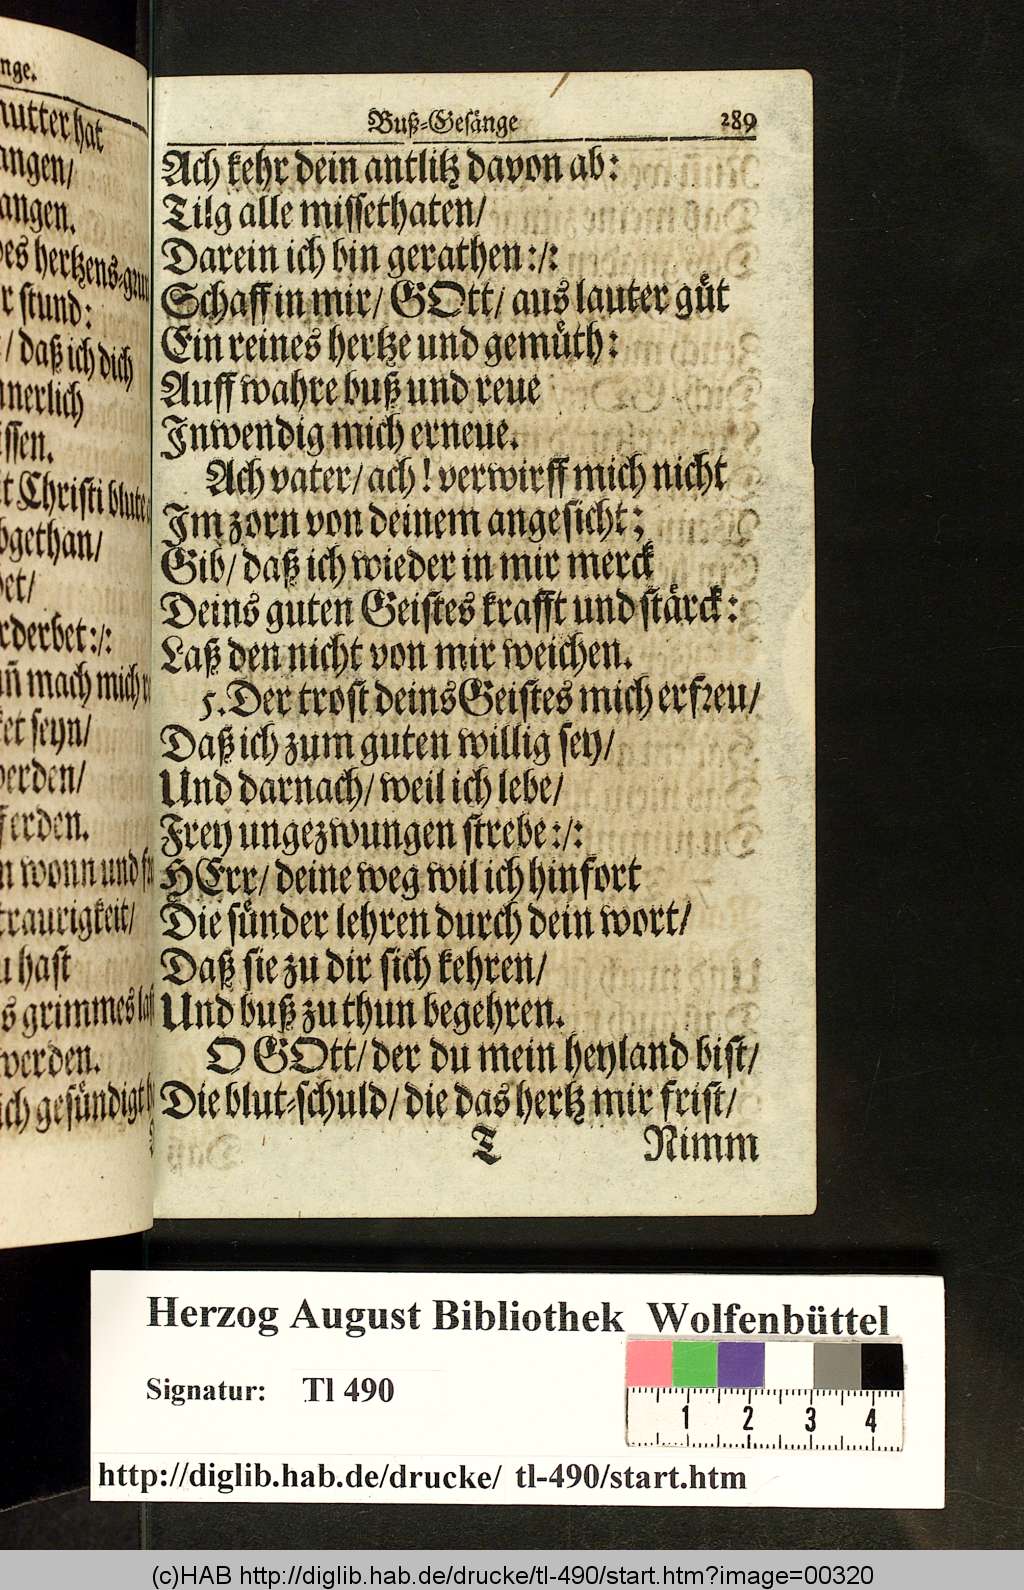 nge.
mutter hat
angen/
angen.
des hertzens-grun
r stund:
/ daß ich dich
nnerlich
issen.
t Christi blute
bgethan/
et/
rderbet:/:
mach mich
ket seyn/
werden/
ferden.
n wonn und
traurigkeit/
u hast
s grimmes
werden.
ich gesündigt
Buß-Gesänge 289
Ach kehr dein antlitz davon ab:
Tilg alle missethaten/
Darein ich bin gerathen:/:
Schaff in mir/ GOtt/ aus lauter güt
Ein reines hertze und gemüth:
Auff wahre buß und reue
Inwendig mich erneue.
Ach vater/ ach! verwirff mich nicht
Im zorn von deinem angesicht;
Gib/ daß ich wieder in mir merck
Deins guten Geistes krafft und stärck:
Laß den nicht von mir weichen.
5. Der trost deins Geistes mich erfreu/
Daß ich zum guten willig sey/
Und darnach/ weil ich lebe/
Frey ungezwungen strebe:/:
HErr/ deine weg wil ich hinfort
Die sünder lehren durch dein wort/
Daß sie zu dir sich kehren/
Und buß zu thun begehren.
O GOtt/ der du mein heyland bist/
Die blut-schuld/ die das hertz mir frist/
T Nimm
Herzog August Bibliothek Wolfenbüttel
Signatur: Tl 490
1 2 3 4
http://diglib.hab.de/drucke/ tl-490/start.htm
(c)HAB http://diglib.hab.de/drucke/tl-490/start.htm?image=00320